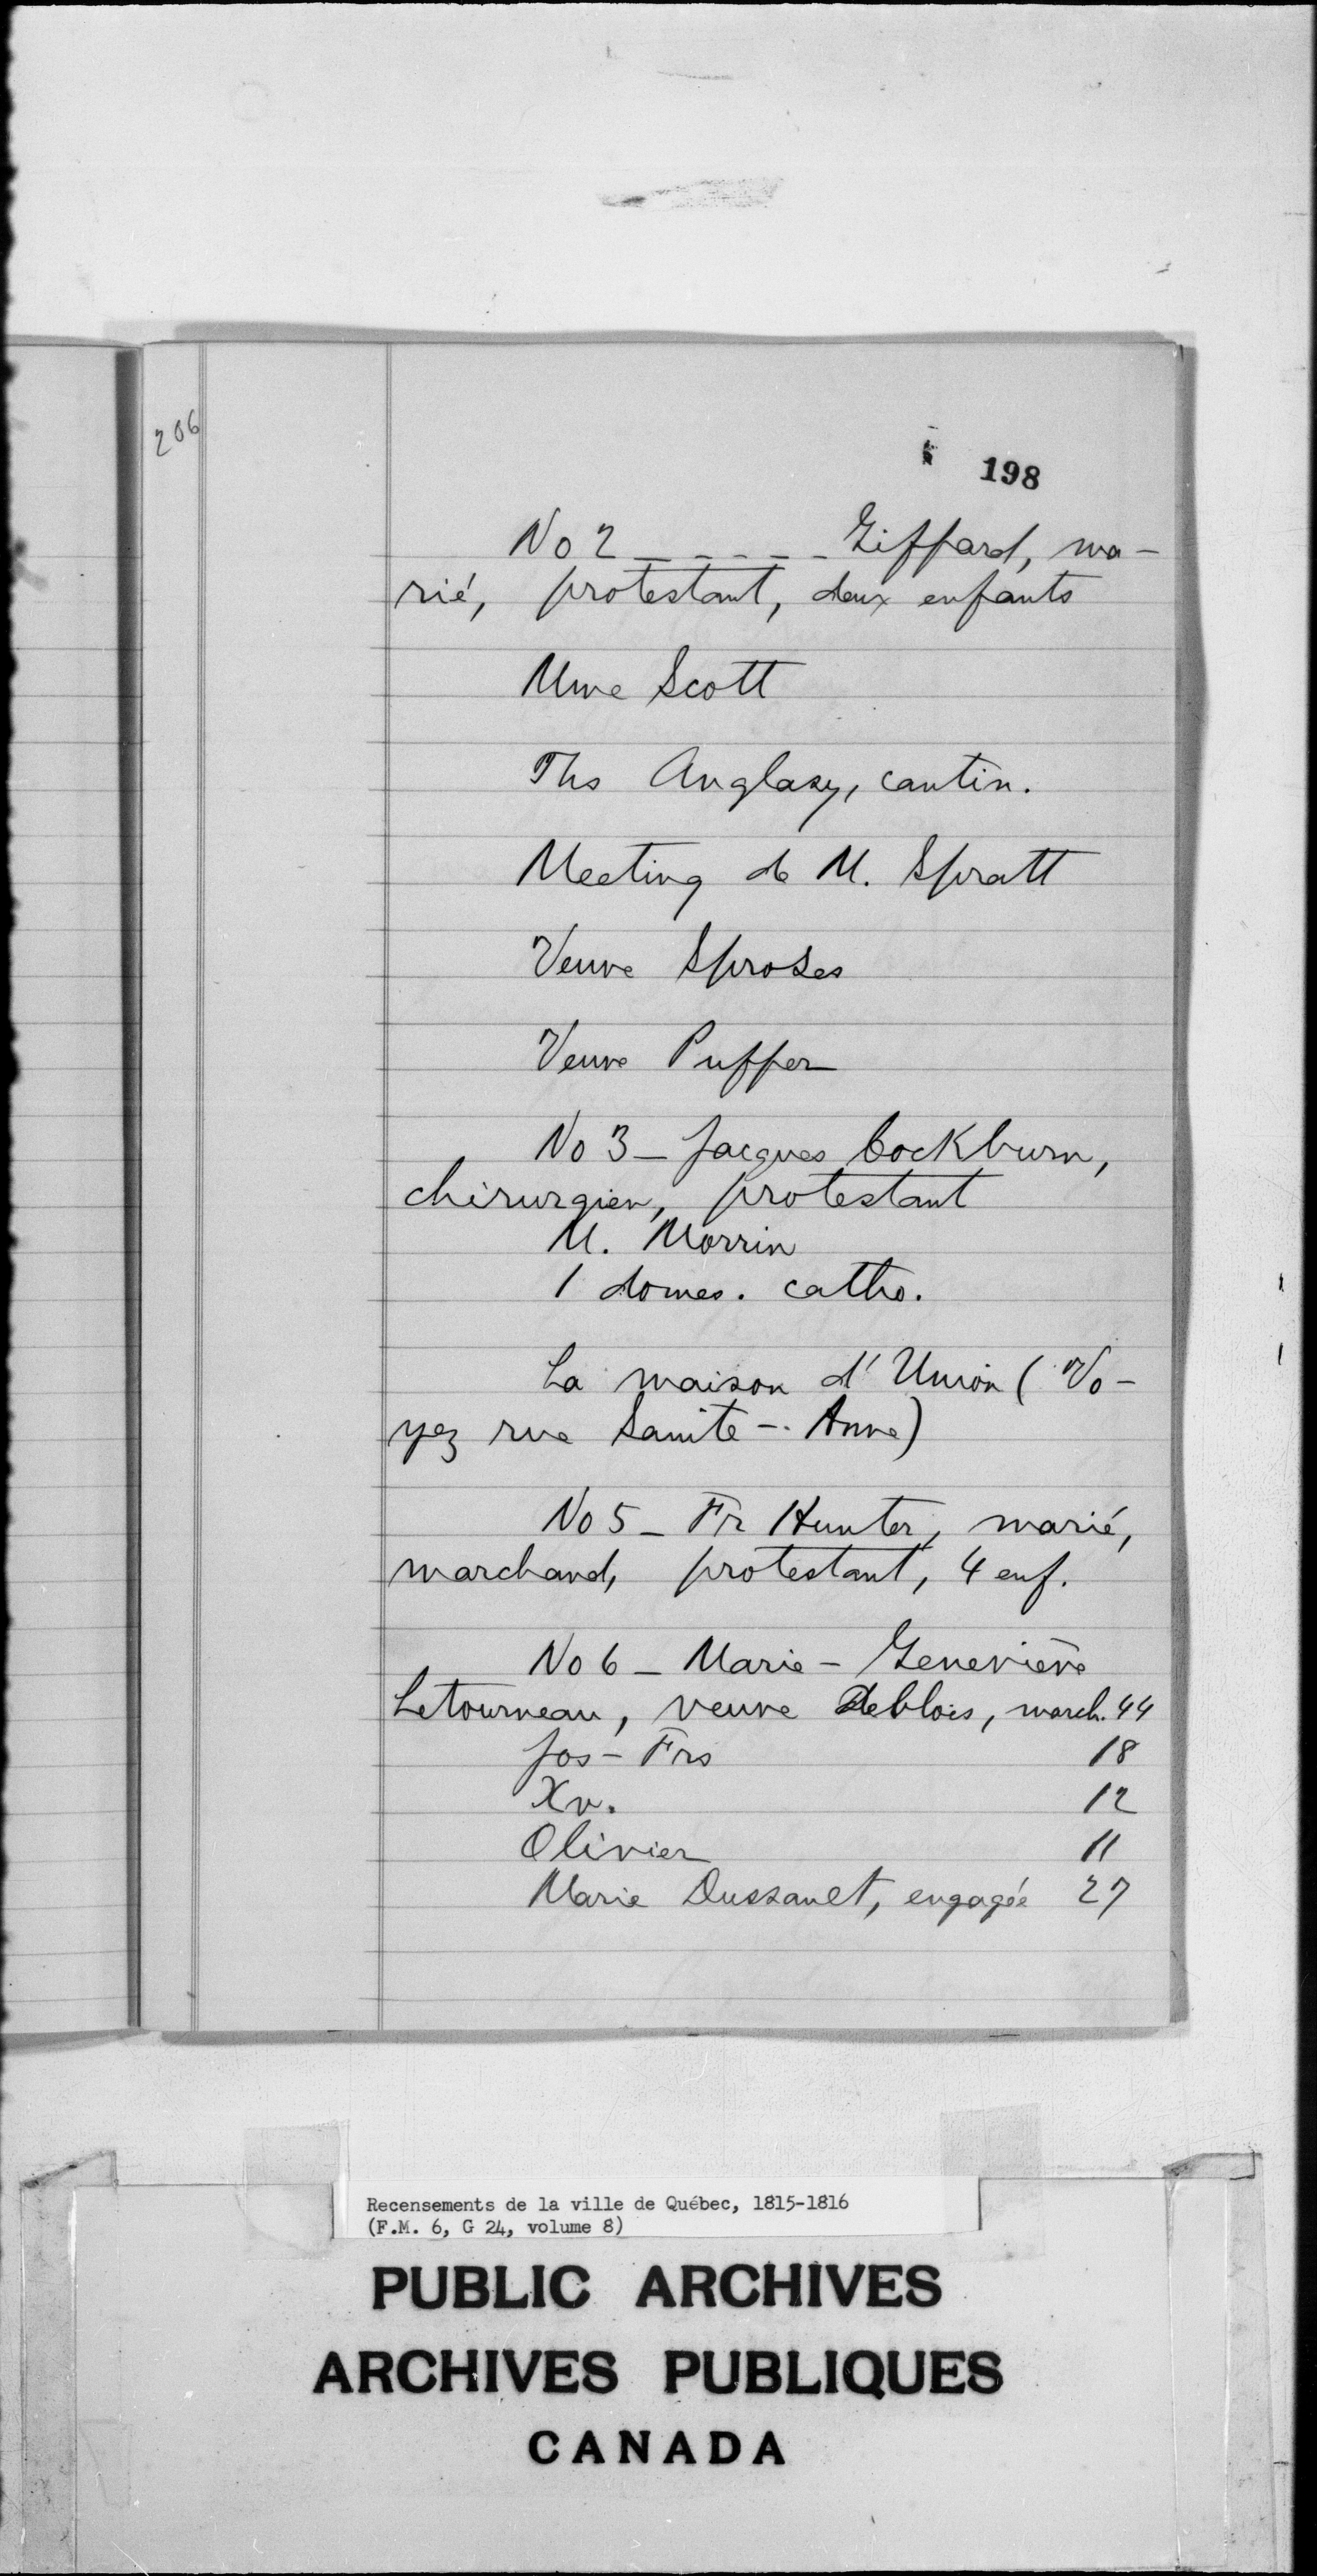 206
198
No 2 _ _ _ _ _ Giffard, ma-
rié, protestant, deux enfants
Mme Scott
Ths Anglasy, cantin.
Meeting de M. Spratt
Veuve Sproses
Veuve Puffer
No 3 _ Jacques Cockburn,
chirurgien, protestant
M. Morrin
1 domes. catho.
La maison d'Union (Vo-
yez rue Sainte-Anne)
No 5 _ Fr Hunter, marié,
marchand, protestant, 4 enf.
No 6 _ Marie-Geneviève
Letourneau, veuve Deblois, march. 44
Jos-Frs 18
Xv. 12
Olivier 11
Marie Dussault, engagée 27
Recensements de la ville de Québec, 1815-1816
(F.M. 6, G 24, volume 8)
PUBLIC ARCHIVES
ARCHIVES PUBLIQUES
CANADA